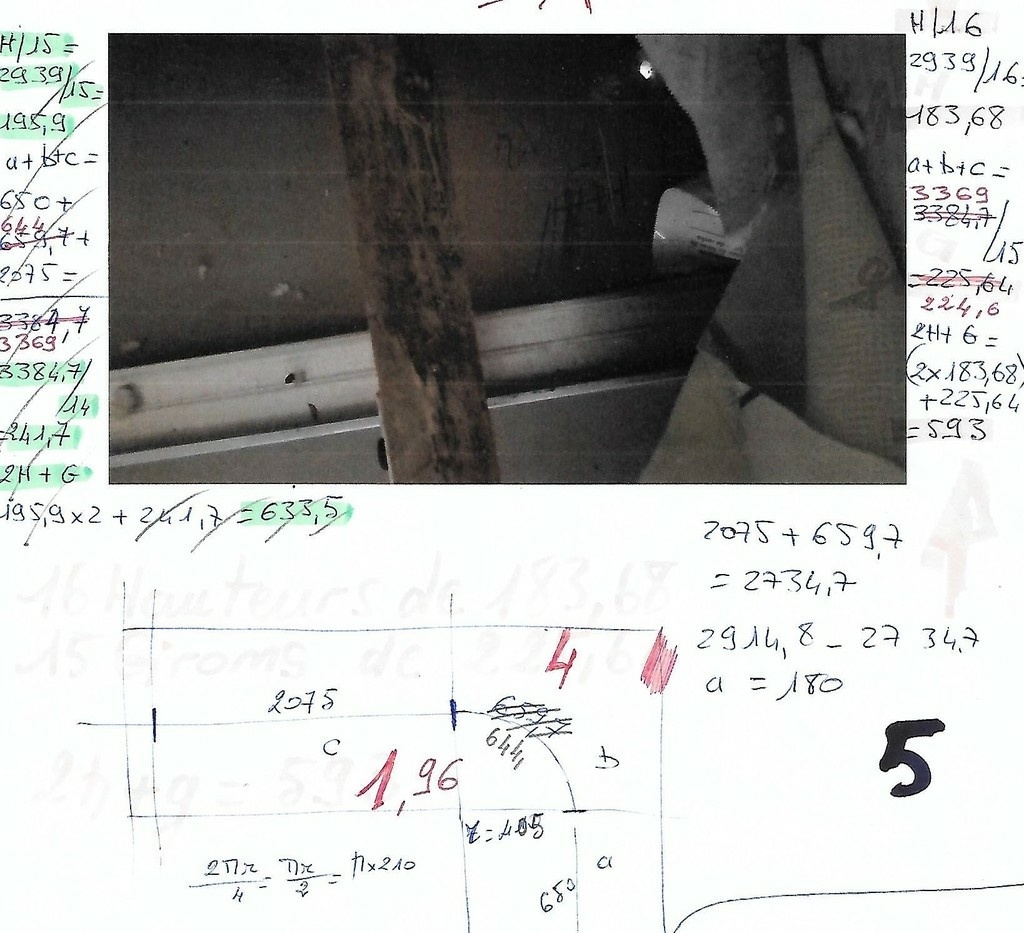 H/15 =
2939
/15=
195,9
a+b+c=
650+
644
659,7+
2075=
3384,7
3369
3384,7/
14
=241,7
2H+G
195,9x2+241,7=633,5
H/16
2939/16=
183,68
a+b+c=
3369
3384,7/
15
=225,64
224,6
2H+G=
(2x183,68)
+225,64
=593
2075+659,7
=2734,7
2914,8-2734,7
a=180
16 Hauteurs de 183,68
15 Girons de 225,6
2h+g=593
4
2075
659,7
644,
c
b
1,96
a
650
2πr/4=πr/2=π×210
5